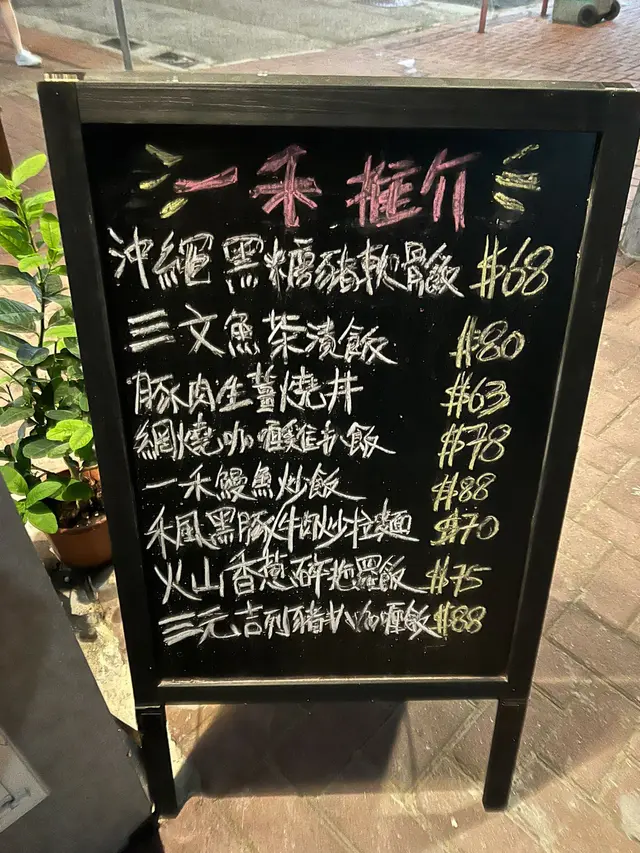 一禾推介
沖繩黑糖豬軟骨飯 $68
三文魚茶漬飯 $80
豚肉生薑燒丼 $63
網燒咖喱雞扒飯 $78
一禾鰻魚炒飯 $88
禾風黑豚牛肉炒拉麵 $70
火山香蔥碎吞羅飯 $75
三元吉列豬扒咖喱飯 $88